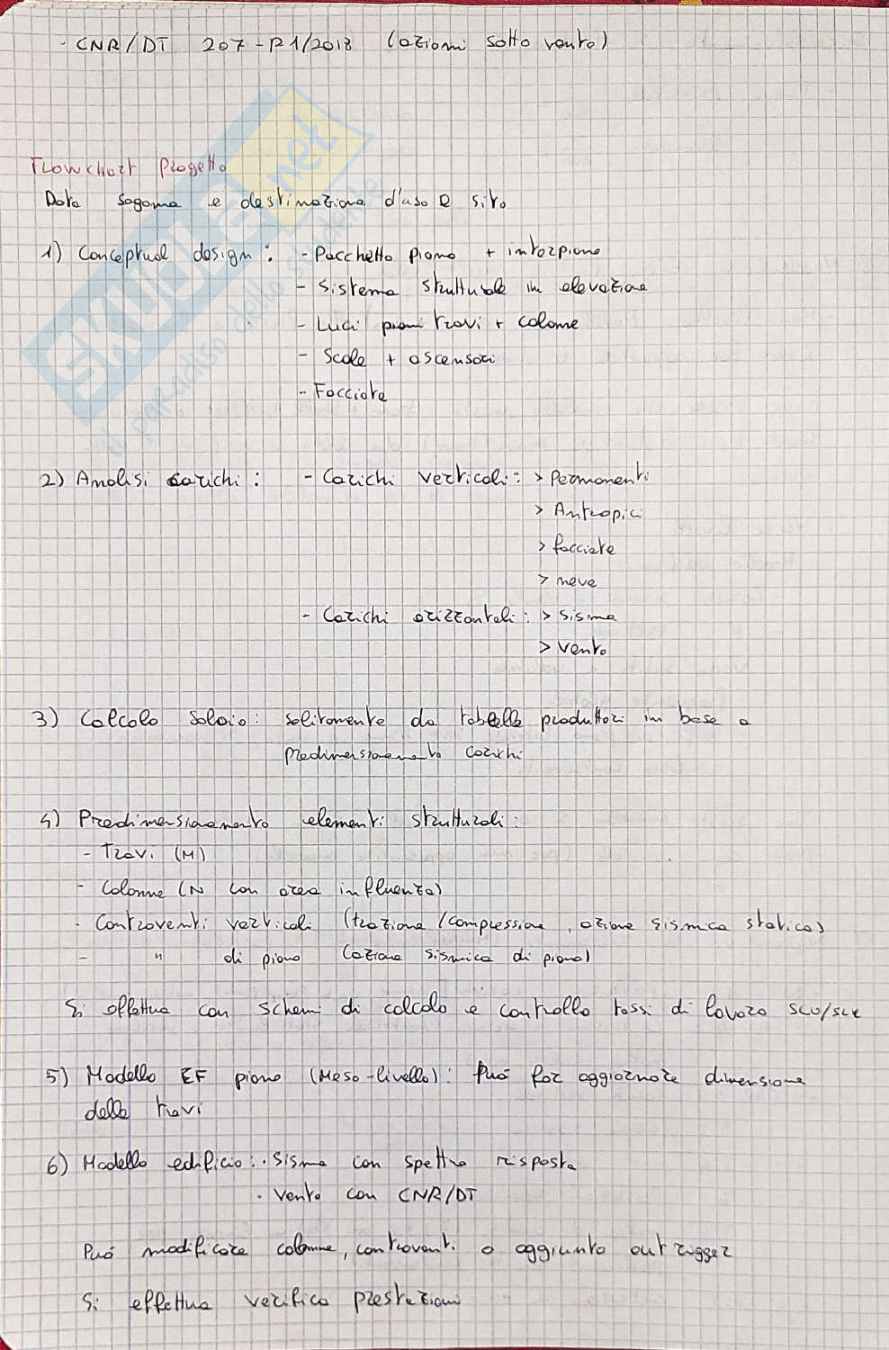 - CNR/DT 207-R1/2018 (azioni sotto vento)
Flowchart Progetto
Data sagoma e destinazione d'uso e sito
1) Conceptual design : - Pacchetto piano + interpiano
- Sistema strutturale in elevazione
- Luci piani travi + colonne
- Scale + ascensori
- Facciate
2) Analisi carichi : - Carichi verticali : > Permanenti
> Antropici
> facciate
> neve
- Carichi orizzontali : > Sisma
> Vento
3) Calcolo Solaio : solitamente da tabelle produttori in base a
predimensionamento carichi
4) Predimensionamento elementi strutturali :
- Travi (M)
- Colonne (N con area influenza)
- Controventi verticali (trazione/compressione, azione sismica statica)
- " di piano (azione sismica di piano)
Si effettua con schemi di calcolo e controllo tassi di lavoro SLU/SLE
5) Modello EF piano (Meso-livello) : Può far aggiornare dimensione
delle travi
6) Modello edificio : · Sisma con spettro risposta
· Vento con CNR/DT
Può modificare colonne, controventi o aggiunta outrigger
Si effettua verifica prestazioni
skuola.net
il paradiso dello studente